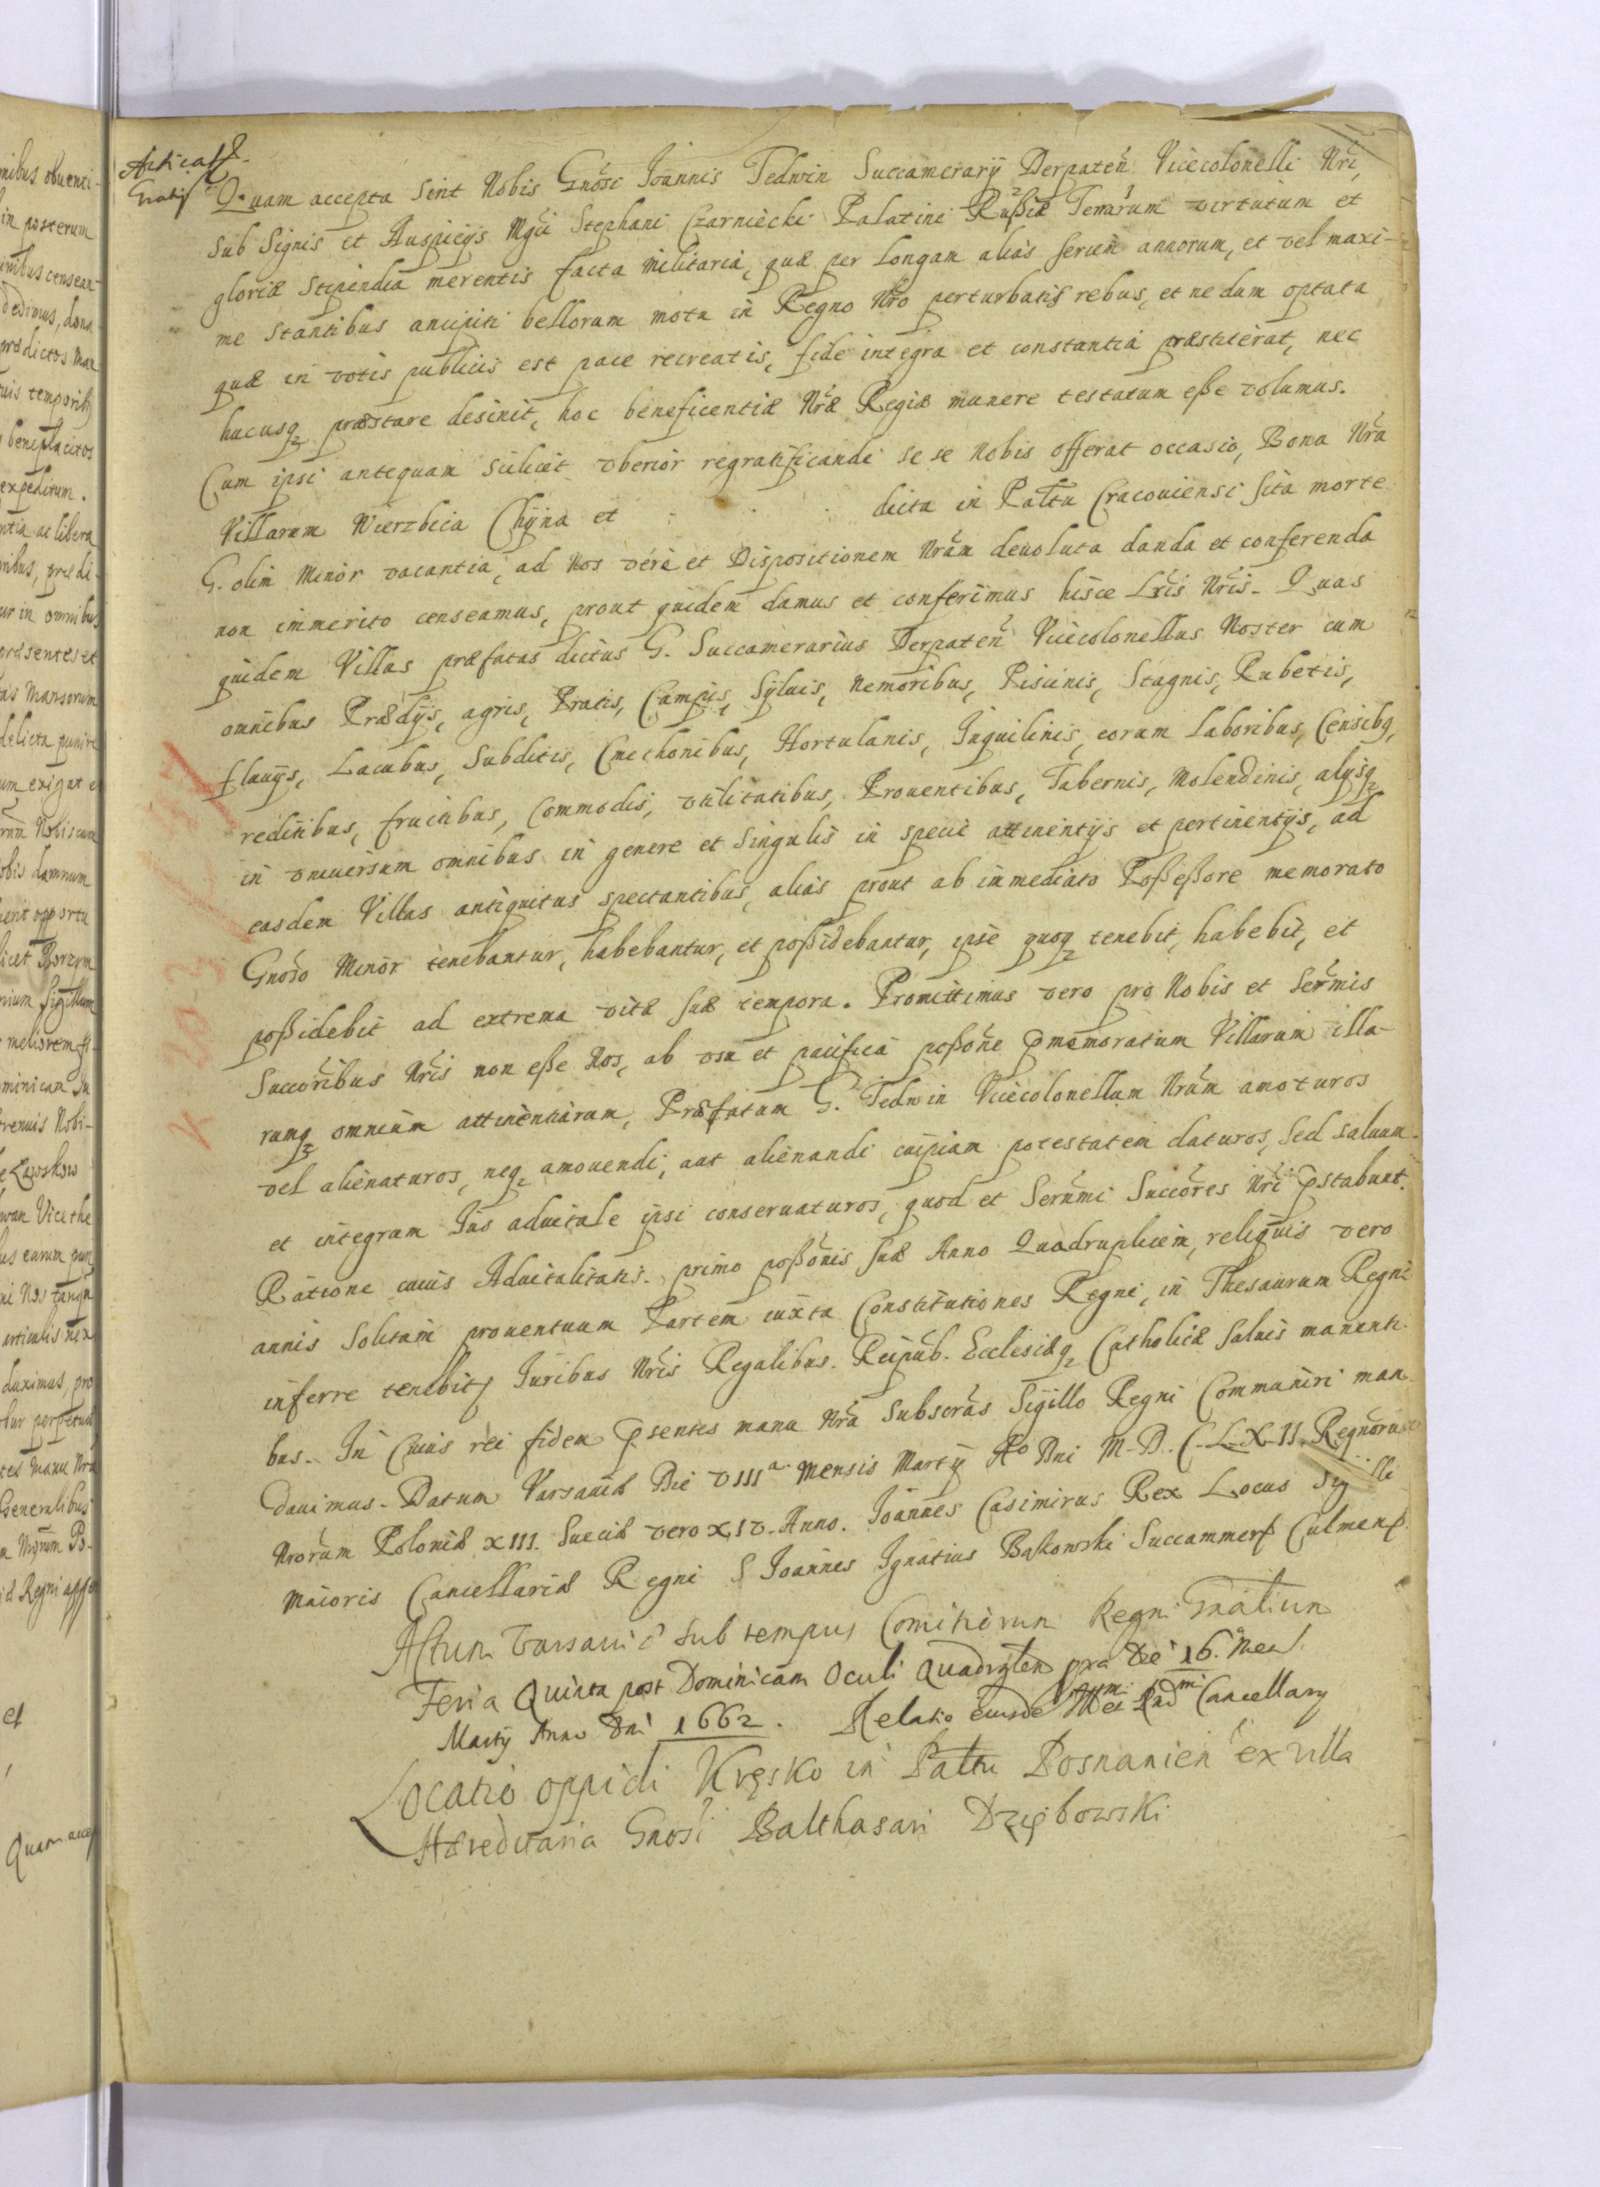 Quam accepta sint Nobis Gnosi Joannis Tedwin Succamerarij Derpaten Vicecolonelli Nri,
sub Signis et Auspicijs Mgci Stephani Czarniecki Palatini Russiæ Terrarum virtutum et
gloriæ Stipendia merentis facta Militaria, quæ per Longam alias seriem annorum, et vel maxi-
me stantibus ancipiti bellorum motu in Regno Nro perturbatis rebus, et ne dum optata
quæ in votis publicis est pace recreatis, fide integra et constantia præstiterat, nec
hucusq præstare desinit, hoc beneficentiæ Nræ Regiæ munere testatum esse volumus.
Cum ipsi antequam scilicet vberior regratificandi se se Nobis offerat occasio, Bona Nra
Villarum Wierzbica Chyna et dicta in Paltu Cracouiensi sita morte
G. olim Minor vacantia, ad Nos verè et Dispositionem Nram deuoluta danda et conferenda
non immerito censeamus, prout quidem damus et conferimus hisce Lris Nris. Quas
quidem Villas præfatas dictus G. Succamerarius Derpaten Vicecolonellus Noster cum
omnibus Prædijs, agris, Pratis, Campis, Syluis, Nemoribus, Piscinis, Stagnis, Rubetis,
fluuijs, Lacubus, Subditis, Cmethonibus, Hortulanis, Inquilinis, eorum Laboribus, Censibq,
reditibus, fructibus, Commodis, vtilitatibus, Prouentibus, Tabernis, Molendinis, alijsq
in vniuersum omnibus in genere et singulis in specie attinentijs et pertinentijs, ad
easdem Villas antiquitus spectantibus, alias prout ab immediato Possessore memorato
Gnoso Minor tenebantur, habebantur, et possidebantur, ipse quoq tenebit, habebit, et
possidebit ad extrema vitæ suæ tempora. Promittimus vero pro Nobis et Sermis
Succoribus Nris non esse Nos, ab vsu et pacifica possone pmemoratum Villarum illa-
rumq omnium attinentiarum, Præfatum G. Tedwin Vicecolonellum Nrum amoturos
vel alienaturos, neq amouendi, aut alienandi cuipiam potestatem daturos, sed saluum
et integrum Ius aduitale ipsi conseruaturos, quod et Serenmi Succores Nri pstabunt.
Ratione cuius Aduitalitatis primo possonis suæ Anno Quadruplicem, reliquis vero
annis solitam prouentuum Partem iuxta Constitutiones Regni, in Thesaurum Regni
inferre tenebitr Juribus Nris Regalibus. Reipub. Ecclesiæq Catholicæ saluis manenti-
bus. In Cuius rei fidem psentes manu Nra subscras Sigillo Regni Communiri man-
dauimus. Datum Varsauiæ Die VIIIa Mensis Martij Ao Dni M.D.C.LXII Regnorum
Nrorum Poloniæ XIII. Sueciæ vero XIV. Anno. Joannes Casimirus Rex Locus Sigilli
Maioris Cancellariæ Regni S Joannes Ignatius Bąkowski Succammers Culmens
Actum Varsauiæ sub tempus Comitiorum Regni Gnalium
Feria Quinta post Dominicam Oculi Quadragten pxa Die 16. Mens
Martij Anno Dni 1662. Relatio eiusde Illmi et Rndmi Cancellarij
Locatio oppidi Kręsko in Paltu Posnanien ex villa
Hæreditaria Gnosi Balthasari Dzięboswki